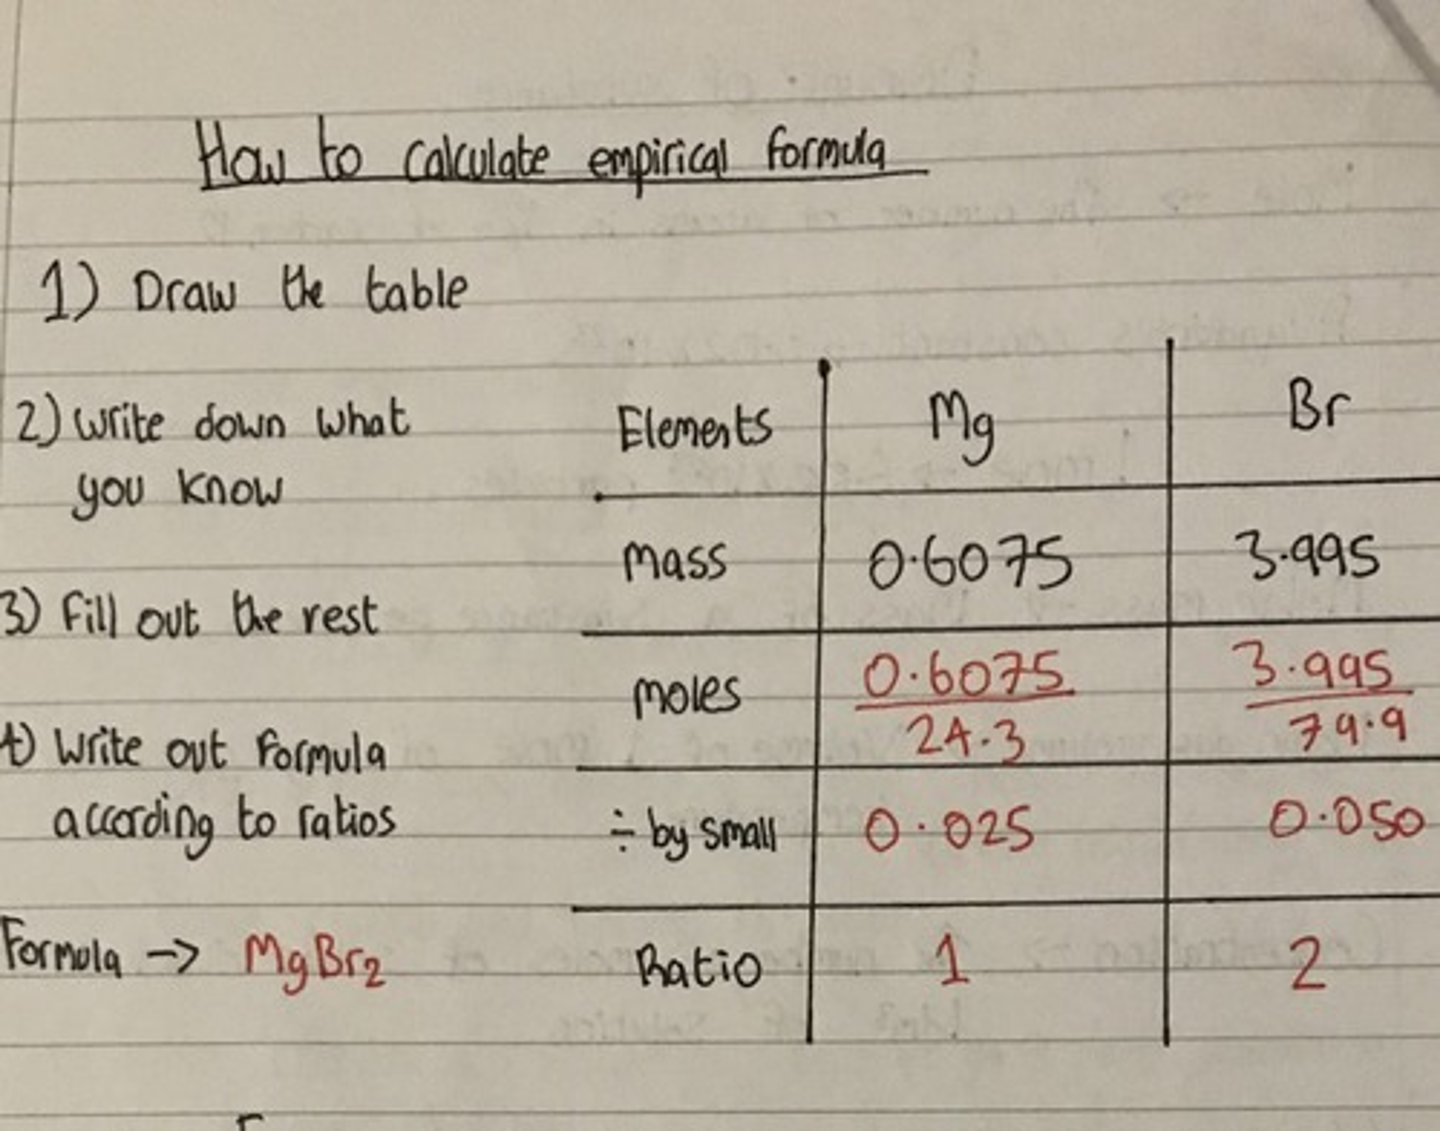 How to calculate empirical formula
1) Draw the table
2) Write down what
you know
3) Fill out the rest
4) Write out formula
according to ratios
Formula → MgBr₂
Elements Mg Br
mass 0.6075 3.995
moles 0.6075/24.3 3.995/79.9
÷ by small 0.025 0.050
Ratio 1 2